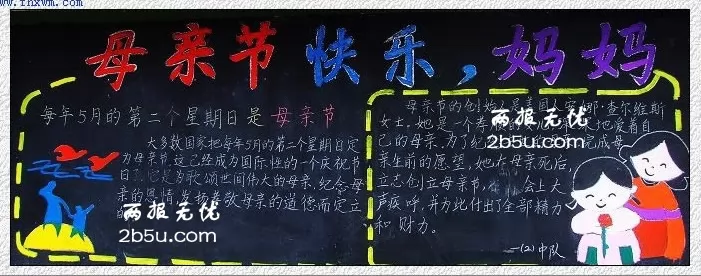 www.fnxwm.com
母亲节快乐，妈妈
每年5月的第二个星期日是母亲节
大多数国家把每年5月的第二个星期日定
为母亲节,这已经成为国际性的一个庆祝节
日,它是为歌颂世间伟大的母亲,纪念母
亲的恩情,发扬孝敬母亲的道德而定立
的
两报无忧
2b5u.com
母亲节的创始人是美国人安娜·查尔维斯
女士,她是一个孝顺的女儿 地爱着自
己的母亲.为了纪 完成母
亲生前的愿望,她在母亲死后,
立志创立母亲节, 会上大
声疾呼,并为此付出了全部精力
和财力。
两报无忧
2b5u.com
一(2)中队